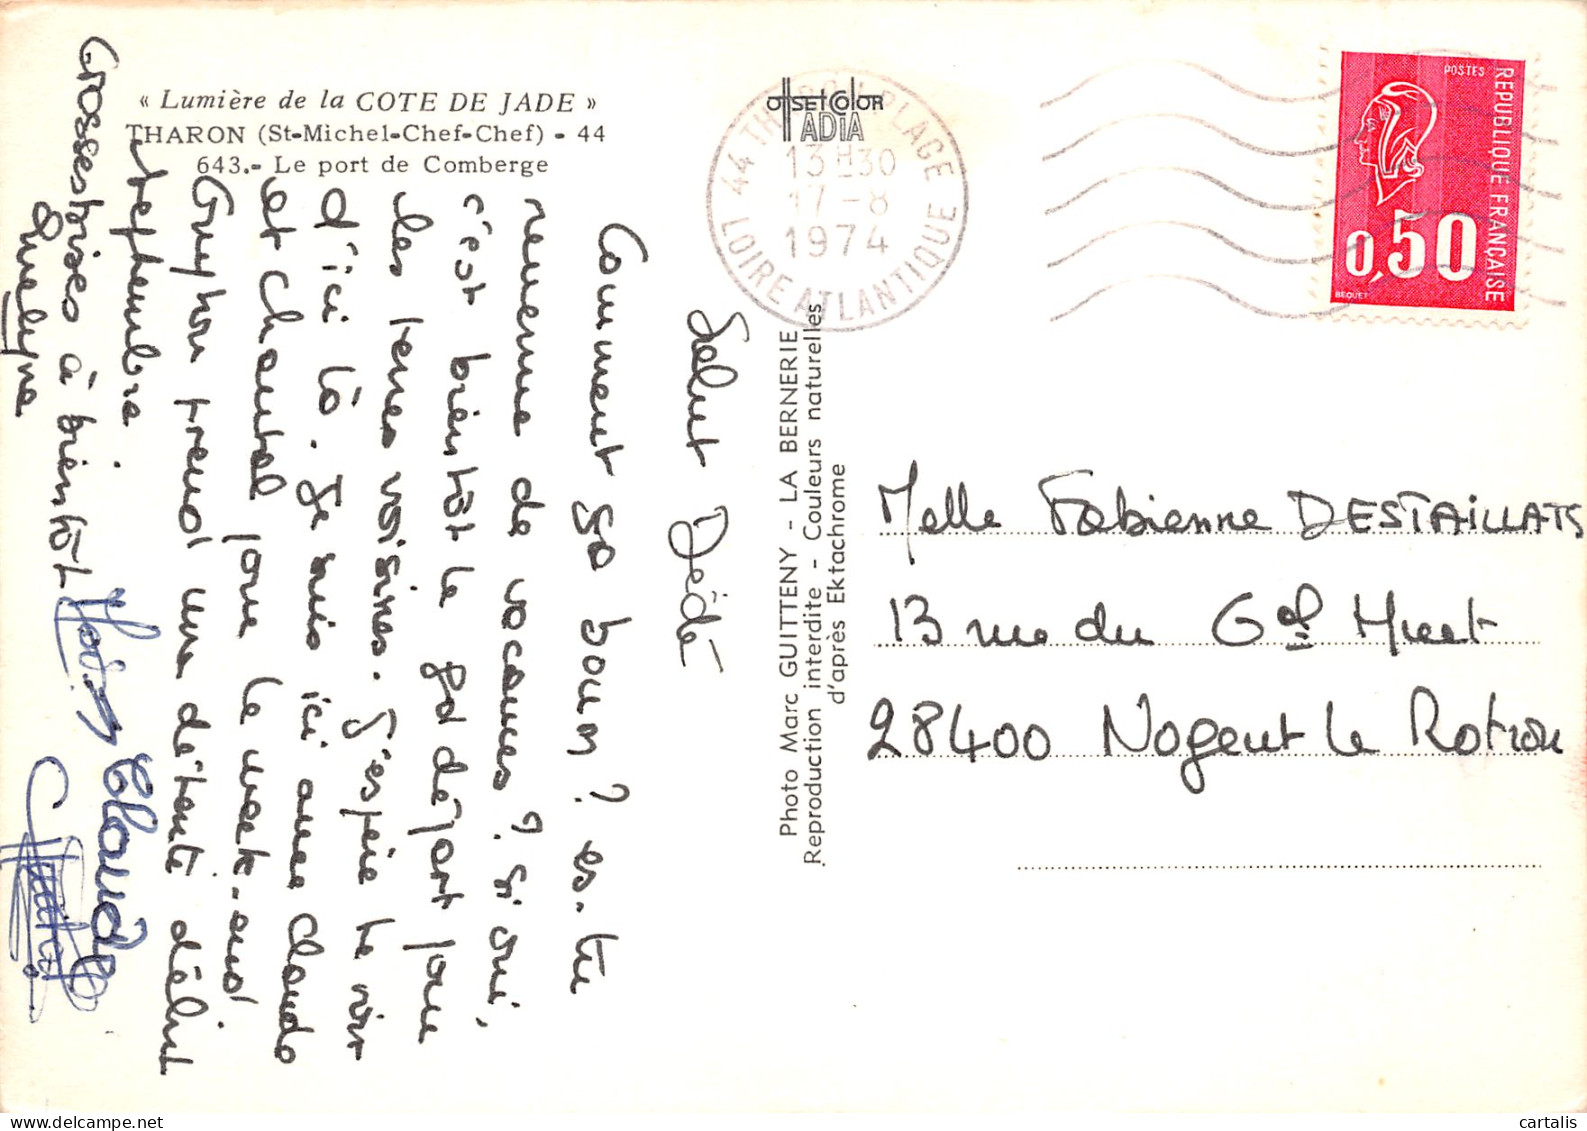 « Lumière de la COTE DE JADE »
THARON (St-Michel-Chef-Chef) - 44
643.- Le port de Comberge
Salut Dédé
Comment ça boum ? es-tu
revenue de vacances ? si oui,
c'est bientôt le gd départ pour
les terres voisines. J'espère te voir
d'ici là. Je suis ici avec Claude
et Chantal pour le week-end.
Guyhou prend une détente début
septembre.
Grosses bises à bientôt
Claude
OFFSET COLOR
ADIA
44 THARON PLAGE
13H30
17-8
1974
LOIRE ATLANTIQUE
POSTES
REPUBLIQUE FRANCAISE
0,50
BEQUET
Photo Marc GUITTENY - LA BERNERIE
Reproduction interdite - Couleurs naturelles
d'après Ektachrome
Melle Fabienne DESTAILLATS
13 rue du Gal Huet
28400 Nogent le Rotrou
cartalis